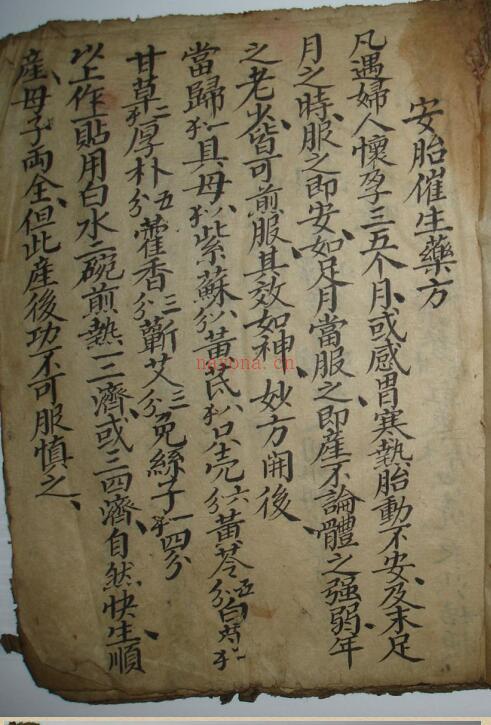 安胎催生藥方
凡遇婦人懷孕三五个月、或感冒寒熱胎動不安、及未足
月之時、服之即安、如足月當服之、即産不論體之强弱、年
之老少、皆可煎服、其效如神、妙方開後、
當歸 具母 紫蘇 黃芪 只壳六分 黃苓五分 白芍
甘草 厚朴五分 藿香三分 蘄艾三分 兔絲子一 四分
以上作一貼用白水二碗煎熱一二濟、或三四濟、自然快生、順
産、母子兩全、但此産後功不可服慎之、
nayona.cn